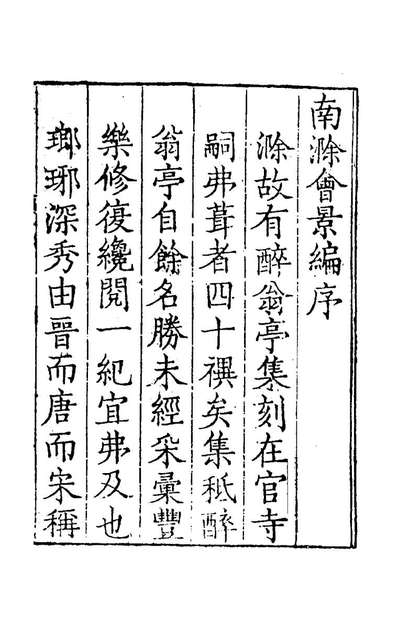 南滁會景編序
滁故有醉翁亭集刻在官寺
嗣弗葺者四十禩矣集秪醉
翁亭自餘名勝未經采彙豐
樂修復纔閱一紀宜弗及也
瑯琊深秀由晉而唐而宋稱